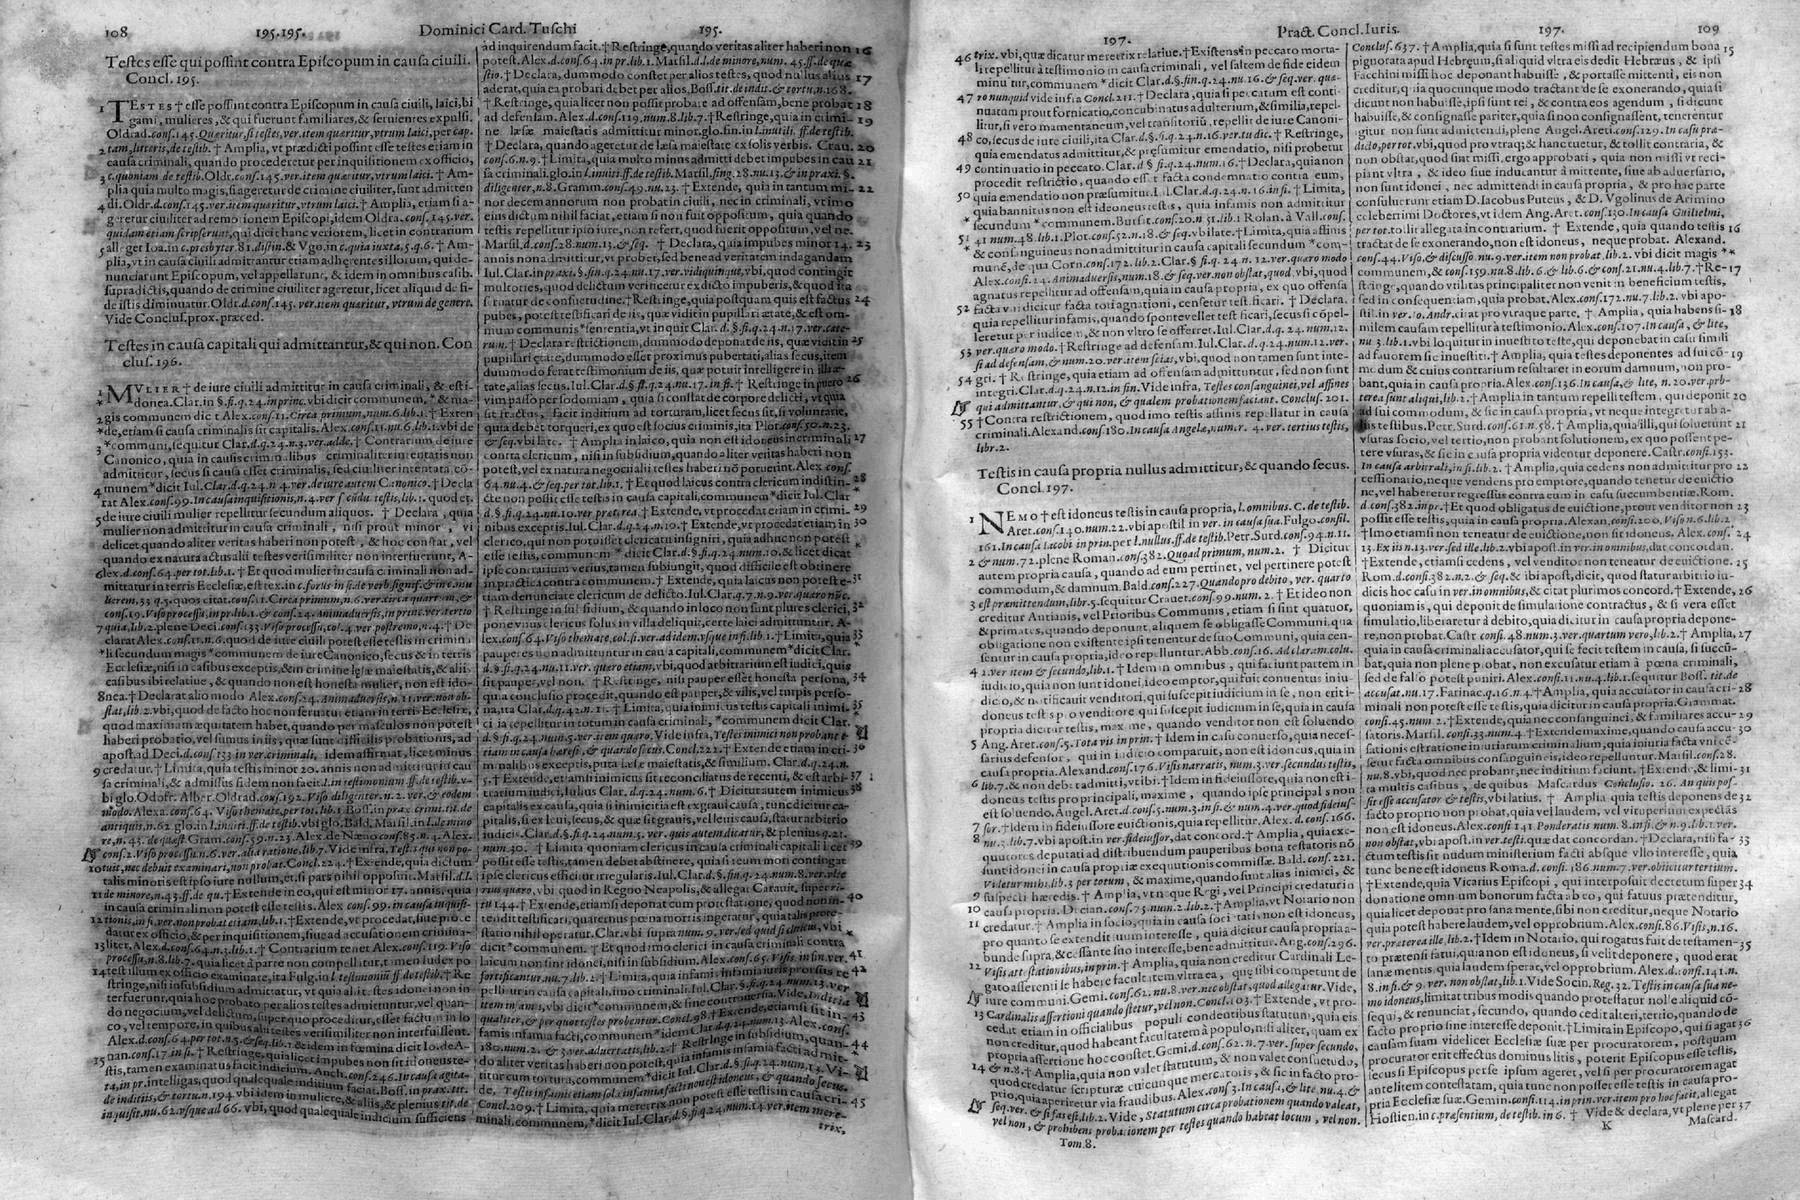 108 195.195. Dominici Card. Tuschi 195.
Testes esse qui possint contra Episcopum in causa ciuili.
Concl. 195.
1 TESTES † esse possint contra Episcopum in causa ciuili, laici, bi
gami, mulieres, & qui fuerunt familiares, & seruientes expulsi.
Oldrad. cons. 145. Quæritur, si testes, ver. item quæritur, vtrum laici, per cap.
2 tam, literis, de testib. † Amplia, vt prædicti possint esse testes etiam in
causa criminali, quando procederetur per inquisitionem ex officio,
3 c. quoniam de testib. Oldr. cons. 145. ver. item quæritur, vtrum laici. † Am-
plia quia multo magis, si ageretur de crimine ciuiliter, sunt admitten
4 di. Oldr. d. cons. 145. ver. item quæritur, vtrum laici. † Amplia, etiam si a-
geretur ciuiliter ad remotionem Episcopi, idem Oldra. cons. 145. ver.
quidam etiam scripserunt, qui dicit hanc veriorem, licet in contrarium
5 alleget Ioa. in c. presbyter 81. distin. & Vgo. in c. quia iuxta, 5. q. 6. † Am-
plia, vt in causa ciuili admittantur etiam adherentes illorum, qui de-
nunciarunt Episcopum, vel appellarunt, & idem in omnibus casib.
supradictis, quando de crimine ciuiliter ageretur, licet aliquid de fi-
de istis diminuatur. Oldr. d. cons. 145. ver. item quæritur, vtrum de genere.
Vide Conclus. prox. præced.
Testes in causa capitali qui admittantur, & qui non. Con
clus. 196.
1 MVLIER † de iure ciuili admittitur in causa criminali, & est i-
donea. Clar. in §. fi. q. 24. in princ. vbi dicit communem, * & ma-
2 gis communem dicit Alex. cons. 11. Circa primum, num. 6. lib. 1. † Exten
de, etiam si causa criminalis sit capitalis. Alex. cons. 15. nu. 6. lib. 1. vbi de
3 * communi, sequitur Clar. d. q. 24. n. 3. ver. adde. † Contrarium de iure
Canonico, quia in causis criminalibus criminaliter intentatis non
admittitur, secus si causa esset criminalis, sed ciuiliter intentata, cō-
4 munem * dicit Iul. Clar. d. q. 24. n. 4. ver. de iure autem Canonico. † Decla
rat Alex. cons. 99. In causa inquisitionis, n. 4. ver. secūdū testis, lib. 1. quod et.
5 de iure ciuili mulier repellitur secundum aliquos. † Declara, quia
mulier non admittitur in causa criminali, nisi prout minor, vi
delicet quando aliter veritas haberi non potest, & hoc constat, vel
quando ex natura actus alii testes verisimiliter non interfuerunt, A-
6 lex. d. cons. 64. per tot. lib. 1. † Et quod mulier in causa criminali non ad-
7 quia, lib. 2. plene Deci. cons. 133. Viso processu, col. 4. ver. postremo, n. 4. † De
clarat Alex. cons. 11. n. 6. quod de iure ciuili potest esse testis in crimin.
* li secundum magis * communem de iure Canonico, secus & in terris
Ecclesiæ, nisi in casibus exceptis, & in crimine læsæ maiestatis, & alii
casibus ibi relatiue, & quando non est honesta mulier, non est ido-
8 nea. † Declarat alio modo Alex. cons. 24. Animaduersis, n. 11. ver. non ob-
stat, lib. 2. vbi, quod de facto hoc non seruatur etiam in terris Ecclesiæ,
quod maximam æquitatem habet, quando per masculos non potest
haberi probatio, vel sumus in iis, quæ sunt difficilis probationis, ad
apost. ad Deci. d. cons. 133. in ver. criminali, idem affirmat, licet minus
9 credatur. † Limita, quia testis minor 20. annis non admittitur in cau
sa criminali, & admissus fidem non facit. l. in testimonium. ff. de testib. v-
bi glo. Odofr. Alber. Oldrad. cons. 192. Viso diligenter. n. 2. ver. & eodem
modo. Alexa. cons. 64. Viso themate, per tot. lib. 1. Boss. in prax. crim. tit. de
antiquis, n. 62. glo. in l. inuiti. ff. de testib. vbi glo. Bald. Marsil. in l. de mino
re, n. 45. de quæst. Gram. cons. 39. n. 23. Alex. de Næuo cons. 85. n. 4. Alex.
cons. 2. Viso processu, n. 6. ver. alia ratione, lib. 7. Vide infra, Testes qui non po-
10 tuit, nec debuit examinari, non probat. Concl. 224. † Extende, quia dictum
talis minoris est ipso iure nullum, et. si pars nihil opposuit. Marsil. d. l.
11 de minore, n. 43. ff. de qu. † Extende in eo, qui est minor 17. annis, quia
in causa criminali non potest esse testis. Alex. cons. 99. in causa inquisi-
12 tionis, in fi. ver. non probat etiam, lib. 1. † Extende, vt procedat, siue proce
datur ex officio, & per inquisitionem, siue ad accusationem crimina-
13 liter. Alex. d. cons. 64. n. 1. lib. 1. † Contrarium tenet Alex. cons. 119. Viso
processu, n. 8. lib. 7. quia licet à parte non compellitur, tamen Iudex po
14 test illum ex officio examinare, ita Fulg. in l. testimoniū ff. de testib. † Re
stringe, nisi in subsidium admittitur, vt quia alii testes idonei non in
terfuerunt, quia hoc probato per alios testes admittuntur, vel quan-
do negocium, vel delictum, super quo proceditur, esset factum in lo
co, vel tempore, in quibus alii testes verisimiliter non interfuissent.
Alex. d. cons. 64. per tot. n. 5. & seq. lib. 1. & idem in fœmina dicit Io. de A-
15 nan. cons. 17. in fi. † Restringe, quia licet impubes non sit idoneus te-
stis, tamen examinatus facit indicium. Anch. cons. 246. In causa agita-
ta, in pr. intelligas, quod qualequale inditium faciat. Boss. in prax. tit.
de inditiis, & tortu. n. 194. vbi idem in muliere, & aliis, & plenius tit. de
iniusit. nu. 62. vsque ad 66. vbi, quod qualequale indicium sufficiens
ad inquirendum facit. † Restringe, quando veritas aliter haberi non 16
potest. Alex. d. cons. 64. in pr. lib. 1. Marsil. d. l. de minore, num. 45. ff. de quæ
stio. † Declara, dummodo constet per alios testes, quod nullus alius 17
aderat, quia ea probari debet per alios. Boss. tit. de indit. & tortu. n. 168.
† Restringe, quia licet non possit probare ad offensam, bene probat 18
ad defensam. Alex. d. cons. 119. num. 8. lib. 7. † Restringe, quia in crimi- 19
ne læsæ maiestatis admittitur minor. glo. fin. in l. inutili. ff. de testib.
† Declara, quando ageretur de læsa maiestate ex solis verbis. Crau. 20
cons. 6. n. 9. † Limita, quia multo minus admitti debet impubes in cau 21
sa criminali. glo. in l. inuiti. ff. de testib. Marsil. sing. 28. nu. 13. & in praxi. §.
diligenter, n. 8. Gramm. cons. 49. nu. 23. † Extende, quia in tantum mi- 22
nor decem annorum non probat in ciuili, nec in criminali, vt imo
eius dictum nihil faciat, etiam si non fuit oppositum, quia quando
testis repellitur ipso iure, non refert, quod fuerit oppositum, vel ne.
Marsil. d. cons. 28. num. 13. & seq. † Declara, quia impubes minor 14. 23
annis non admittitur, vt probet, sed bene ad veritatem indagandam
Iul. Clar. in praxi. §. fin. q. 24. nu. 17. ver. vidi quinque, vbi, quod contingit
multoties, quod delictum verificetur ex dicto impuberis, & quod ita
seruatur de consuetudine. † Restringe, quia postquam quis est factus 24
pubes, potest testificari de iis, quæ vidit in pupillari ætate, & est com
mum communis * sententia, vt inquit Clar. d. §. fi. q. 24. n. 17. ver. cæte-
rum. † Declara restrictionem, dummodo deponat de iis, quæ vidit in 25
pupillari ætate, dummodo esset proximus pubertati, alias secus, item
dummodo ferat testimonium de iis, quæ potuit intelligere in illa æ-
tate, alias secus. Iul. Clar. d. § fi. q. 24. nu. 17. in fi. † Restringe in puero 26
vim passo per sodomiam, quia si constat de corpore delicti, vt quia
sit fractus, facit inditium ad torturam, licet secus sit, si voluntarie,
quia debet torqueri, ex quo est socius criminis, ita Plot. cons. 50. n. 23.
& seq. vbi late. † Amplia in laico, quia non est idoneus in criminali 27
contra clericum, nisi in subsidium, quando aliter veritas haberi non
potest, vel ex natura negocii alii testes haberi nō potuerint. Alex. cons.
64. nu. 4. & seq. per tot. lib. 1. † Et quod laicus contra clericum indistin- 28
cte non possit esse testis in causa capitali, communem * dicit Iul. Clar.
d. §. fi. q. 24. nu. 10. ver. præterea. † Extende, vt procedat etiam in crimi- 29
nibus exceptis. Iul. Clar. d. q. 24. n. 10. † Extende, vt procedat etiam in 30
clerico, qui non potuisset clericatu insigniri, quia adhuc non potest
esse testis, communem * dicit Clar. d. §. fi. q. 24. num. 10. & licet dicat
ipse contrarium verius, tamen subiungit, quod difficile est obtinere
in practica contra communem. † Extende, quia laicus non potest e- 31
tiam denunciare clericum de delicto. Iul. Clar. q. 7. n. 9. ver. quæro nūc.
† Restringe in subsidium, & quando in loco non sunt plures clerici, 32
pone vnus clericus solus in villa deliquit, certe laici admittuntur. A-
lex. cons. 64. Viso themate, col. fi. ver. ad idem. vsque in fi. lib. 1. † Limita, quia 33
pauperes non admittuntur in causa capitali, communem * dicit Clar.
d. §. fi. q. 24. nu. 11. ver. quero etiam, vbi, quod arbitrarium est iudici, quis
sit pauper, vel non. † Restringe, nisi pauper esset honesta persona, 34
quia conclusio procedit, quando est pauper, & vilis, vel turpis perso-
na, ita Clar. d. q. 24. n. 11. † Limita, quia inimicus testis capitali inimi- 35
cicia repellitur in totum in causa criminali, * communem dicit Clar.
d. §. fi. q. 24. num. 5. ver. item quero. Vide infra, Testes inimici non probant e-
tiam in causa heresis, & quando secus. Concl. 221. † Extende etiam in cri- 36
minalibus exceptis, puta læsæ maiestatis, & similium. Clar. d. q. 24. n.
5. † Extende, et. iam si inimicus sit reconciliatus de recenti, & est arbi- 37
trarium iudici, Iulius Clar. d. q. 24. num. 6. † Dicitur autem inimicus 38
capitalis ex causa, quia si inimicitia est ex graui causa, tunc dicitur ca-
pitalis, si ex leui, secus, & quæ sit grauis, vel leuis causa, statur arbitrio
iudicis. Clar. d. §. fi. q. 24. num. 5. ver. quis autem dicatur, & plenius q. 21.
num. 30. † Limita quoniam clericus in causa criminali capitali licet 39
possit esse testis, tamen debet abstinere, quia si reum mori contingat
ipse clericus efficitur irregularis. Iul. Clar. d. §. fin. q. 24. num. 8. ver. vlte
rius quæro, vbi quod in Regno Neapolis, & allegat Carauit. super ri-
tu 144. † Extende, etiamsi deponat cum protestatione, quod non in- 40
tendit testificari, quatenus pœna mortis ingeratur, quia talis prote-
statio nihil operatur. Clar. vbi supra num. 9. ver. sed quid si clericus, vbi
dicit * communem. † Et quod imo clerici in causa criminali contra
laicum non sint idonei, nisi in subsidium. Alex. cons. 65. Visis. in fin. ver. 41
fortificantur, nu. 7. lib. 2. † Limita, quia infamis infamia iuris prorsus re 42
pellitur in causa capitali, imo criminali. Iul. Clar. §. fin. q. 24. num. 13. ver.
item infamis, vbi dicit * communem, & sine controuersia. Vide, Inditia
qualiter, & per quot testes probentur. Concl. 98. † Extende, etiamsi sit in- 43
famis infamia facti, communem * idem Clar. d. q. 24. num. 13. Alex. cons.
180. num. 2. & 3. ver. aduertatis, lib. 2. † Restringe in subsidium, quan- 44
do aliter veritas haberi non potest, quia infamis infamia facti admit-
titur cum tortura, communem * dicit Iul. Clar. d. §. fi. q. 24. num. 13. Vi-
de, Testis infamis etiam sola infamia facti non est idoneus, & quando secus.
Concl. 209. † Limita, quia meretrix non potest esse testis in causa cri- 45
minali, communem, * dicit Iul. Clar. d. §. fi. q. 24. num. 14. ver. item mere-
trix,
197. Pract. Concl. Iuris. 197. 109
46 trix. vbi, quæ dicatur meretrix relatiue. † Existens in peccato morta-
li repellitur à testimonio in causa criminali, vel saltem de fide eidem
minuitur, communem * dicit Clar. d. §. fin. q. 24. nu. 16. & seq. ver. quæ-
47 ro nunquid vide infra Concl. 211. † Declara, quia si peccatum est conti-
nuatum prout fornicatio, concubinatus adulterium, & similia, repel-
litur, si vero momentaneum, vel transitoriū, repellit de iure Canoni-
48 co, secus de iure ciuili, ita Clar. d. §. fi. q. 24. n. 16. ver. tu dic. † Restringe,
quia emendatus admittitur, & præsumitur emendatio, nisi probetur
49 continuatio in peccato. Clar. d. § fi. q. 24. num. 16. † Declara, quia non
procedit restrictio, quando esset facta condemnatio contra eum,
50 quia emendatio non præsumitur. Iul. Clar. d. q. 24. n. 16. in fi. † Limita,
quia bannitus non est idoneus testis, quia infamis non admittitur
* secundum * communem. Bursat. cons. 20. n. 31. lib. 1. Rolan. à Vall. cons.
51 41. num. 48. lib. 1. Plot. cons. 52. n. 18. & seq. vbi late. † Limita, quia affinis
* & consanguineus non admittitur in causa capitali secundum * com-
munē, de qua Corn. cons. 172. lib. 2. Clar. §. fi. q. 24. n. 12. ver. quæro modo
Alex. consi. 24. Animaduersis, num. 18. & seq. ver. non obstat, quod, vbi, quod
agnatus repellitur ad offensam, quia in causa propria, ex quo offensa
52 facta vni dicitur facta toti agnationi, censetur testificari. † Declara.
quia repellitur infamis, quando sponte vellet testificari, secus si cōpel-
leretur per iudicem, & non vltro se offerret. Iul. Clar. d. q. 24. num. 12.
53 ver. quæro modo. † Restringe ad defensam. Iul. Clar. d. q. 24. num. 12. ver.
si ad defensam, & num. 20. ver. item scias, vbi, quod non tamen sunt inte-
54 gri. † Restringe, quia etiam ad offensam admittuntur, sed non sunt
integri. Clar. d. q. 24. n. 12. in fin. Vide infra, Testes consanguinei, vel affines
qui admittantur, & qui non, & qualem probationem faciant. Conclus. 201.
55 † Contra restrictionem, quod imo testis affinis repellatur in causa
criminali. Alexand. cons. 180. In causa Angelæ, num. 1. 4. ver. tertius testis,
libr. 2.
Testis in causa propria nullus admittitur, & quando secus.
Concl. 197.
1 NEMO † est idoneus testis in causa propria, l. omnibus. C. de testib.
Aret. cons. 140. num. 22. vbi apostil. in ver. in causa sua. Fulgo. consil.
161. In causa Iacobi in prin. per l. nullus. ff. de testib. Petr. Surd. cons. 94. n. 11.
2 & num. 72. plene Roman. cons. 382. Quo ad primum, num. 2. † Dicitur
autem propria causa, quando ad eum pertinet, vel pertinere potest
commodum, & damnum. Bald. cons. 227. Quando pro debito, ver. quarto
3 est præmittendum, libr. 5. sequitur Crauet. cons. 99. num. 2. † Et ideo non
creditur Antianis, vel Prioribus Communis, etiam si sint quatuor,
& primates, quando deponunt aliquem se obligasse Communi. qua
obligatione non existente ipsi tenentur de suo Communi, quia cen-
sentur in causa propria, ideo repelluntur. Abb. cons. 16. Ad claram. colu.
4 2. ver. item & secundo, lib. 1. † Idem in omnibus, qui faciunt partem in
iudicio, quia non sunt idonei, ideo emptor, qui fuit conuentus in iu-
dicio, & notificauit venditori, qui suscepit iudicium in se, non erit i-
doneus testis pro venditore qui suscepit iudicium in se, quia in causa
propria dicitur testis, maxime, quando venditor non est soluendo
5 Ang. Aret. cons. 5. Tota vis in prin. † Idem in causa conuerso, quia neces-
sarius defensor, qui in iudicio comparuit, non est idoneus, quia in
causa propria. Alexand. cons. 176. Visis narratis, num. 3. ver. secundus testis,
6 lib. 7. & non debet admitti, vt ibi. † Idem in fideiussore, quia non est i-
doneus testis pro principali, maxime, quando ipse principalis non
est soluendo. Angel. Aret. d. cons. 5. num. 3. in fi. & num. 4. ver. quod fideius-
7 sor. † Idem in fideiussore euictionis, quia repellitur. Alex. d. cons. 166.
8 num. 3. lib. 7. vbi apost. in ver. fideiussor, dat concord. † Amplia, quia exe-
quutores deputati ad distribuendum pauperibus bona testatoris nō
sunt idonei in causa propriæ exequutionis commissæ. Bald. cons. 221.
Videtur mihi, lib. 3. per totum, & maxime, quando sunt alias inimici, &
9 suspecti hæredis. † Amplia, vt neque Regi, vel Principi credatur in
10 causa propria. Decian. cons. 75. num. 2. lib. 2. † Amplia, vt Notario non
11 credatur. † Amplia in socio, quia in causa societatis non est idoneus,
pro quanto se extendit suum interesse, quia dicitur causa propria a-
bunde supra, & cessante suo interesse, bene admittitur. Ang. cons. 296.
12 Visis attestationibus, in prin. † Amplia, quia non creditur Cardinali Le-
gato asserenti se habere facultatem vltra ea, quæ sibi competunt de
iure communi. Gemi. cons. 62. nu. 8. ver. nec obstat, quod allegatur. Vide,
13 Cardinalis assertioni quando stetur, vel non. Concl. 103. † Extende, vt pro-
cedat etiam in officialibus populi condentibus statutum, quia eis
non creditur, quod habeant facultatem à populo, nisi aliter, quam ex
propria assertione hoc constet. Gemi. d. cons. 62. n. 7. ver. super secundo,
14 & n. 8. † Amplia, quia non valet statutum, & non valet consuetudo,
quod credatur scripturæ cuiuscunque mercatoris, & sic in facto pro-
prio, quia aperiretur via fraudibus. Alex. cons. 3. In causa, & lite nu. 4. &
seq. ver. & si fatæsi. lib. 2. Vide, Statutum circa probationem quando valeat,
vel non, & prohibens probationem per testes quando habeat locum, vel non.
Tom. 8.
Conclus. 637. † Amplia, quia si sunt testes missi ad recipiendum bona 15
pignorata apud Hebreum, si aliquid vltra eis dedit Hebræus, & ipsi
Facchini missi hoc deponant habuisse, & portasse mittenti, eis non
creditur, quia quocunque modo tractant de se exonerando, quia si
dicunt non habuisse, ipsi sunt rei, & contra eos agendum, si dicunt
habuisse, & consignasse pariter, quia si non consignassent, tenerentur
igitur non sunt admittendi, plene Angel. Areti. cons. 129. In casu præ-
dicto, per tot. vbi, quod pro vtraq; & hanc tuetur, & tollit contraria, &
non obstat, quod sunt missi, ergo approbati, quia non missi vt reci-
piant vltra, & ideo siue inducantur à mittente, siue ab aduersario,
non sunt idonei, nec admittendi in causa propria, & pro hac parte
consuluerunt etiam D. Iacobus Puteus, & D. Vgolinus de Arimino
celeberrimi Doctores, vt idem Ang. Aret. cons. 130. In causa Guilielmi,
per tot. tollit allegata in contrarium. † Extende, quia quando testis 16
tractat de se exonerando, non est idoneus, neque probat. Alexand.
cons. 44. Viso, & discusso nu. 9. ver. item non probat, lib. 2. vbi dicit magis *
communem, & cons. 159. nu. 8. lib. 6. & lib. 6. & cons. 21. nu. 4. lib. 7. † Re- 17
stringe, quando vtilitas principaliter non venit in beneficium testis,
sed in consequentiam, quia probat. Alex. cons. 172. nu. 7. lib. 2. vbi apo-
stil. in ver. Io. Andr. citat pro vtraque parte. † Amplia, quia habens si- 18
milem causam repellitur à testimonio. Alex. cons. 107. In causa, & lite,
nu. 3. lib. 1. vbi loquitur in inuestito teste, qui deponebat in casu simili
ad fauorem sic inuestiti. † Amplia, quia testes deponentes ad sui cō- 19
modum & cuius contrarium resultaret in eorum damnum, non pro-
bant, quia in causa propria. Alex. cons. 136. In causa, & lite, n. 20. ver. præ-
terea sunt aliqui, lib. 2. † Amplia in tantum repelli testem, qui deponit 20
ad sui commodum, & sic in causa propria, vt neque integretur ab a-
liis testibus. Petr. Surd. cons. 61. n. 58. † Amplia, quia illi, qui soluerunt 21
vsuras socio, vel tertio, non probant solutionem, ex quo possent pe-
tere vsuras, & sic in causa propria videntur deponere. Castr. cons. 153.
In causa arbitrali, in fi. lib. 2. † Amplia, quia cedens non admittitur pro 22
cessionario, neque vendens pro emptore, quando tenetur de euictio
ne, vel haberetur regressus contra eum in casu succumbentiæ. Rom.
d. cons. 382. in pr. † Et quod obligatus de euictione, prout venditor non 23
possit esse testis, quia in causa propria. Alexan. consi. 200. Viso n. 6. lib. 2
† Imo etiamsi non teneatur de euictione, non sit idoneus. Alex. cons. 24
13. Ex iis n. 13. ver. sed ille, lib. 2. vbi apost. in ver. in omnibus, dat concordan.
† Extende, etiamsi cedens, vel venditor non teneatur de euictione. 25
Rom. d. cons. 382. n. 2. & seq. & ibi apost. dicit, quod statur arbitrio iu-
dicis hoc casu in ver. in omnibus, & citat plurimos concord. † Extende, 26
quoniam is, qui deponit de simulatione contractus, & si vera esset
simulatio, liberaretur à debito, quia dicitur in causa propria depone-
re, non probat. Castr. consi. 48. num. 3. ver. quartum vero, lib. 2. † Amplia, 27
quia in causa criminali accusator, qui se fecit testem in causa, si succū-
bat, quia non plene probat, non excusatur etiam à pœna criminali,
sed de falso potest puniri. Alex. cons. 11. nu. 4. lib. 1. sequitur Boss. tit. de
accusat. nu. 17. Farinac. q. 16. n. 4. † Amplia, quia accusator in causa cri- 28
minali non potest esse testis, quia dicitur in causa propria. Grammat.
cons. 45. num. 2. † Extende, quia nec consanguinei, & familiares accu- 29
satoris. Marsil. cons. 33. num. 4. † Extende maxime, quando causa accu- 30
sationis est ratione iniuriarum criminalium, quia iniuria facta vni cē-
setur facta omnibus consanguineis, & familiaribus. Marsil. cons. 28.
nu. 8. vbi, quod nec probant, nec inditium faciunt. † Extende, & limi- 31
ta multis casibus, de quibus Mascardus Conclusio. 26. An quis pos-
sit esse accusator & testis, vbi latius. † Amplia quia testis deponens de 32
facto proprio non probat, quia vel laudem, vel vituperium expectās
non est idoneus. Alex. consi. 141. Ponderatis num. 8. in fi. & n. 9. lib. 1. ver.
non obstat, vbi apost. in ver. testis, quæ dat concordan. † Declara, nisi fa- 33
ctum testis sit nudum ministerium facti absque vllo interesse, quia
tunc bene est idoneus Roma. d. consi. 186. nu. 7. ver. obiicitur tertium.
† Extende, quia Vicarius Episcopi, qui interposuit decretum super 34
donatione omnium bonorum facta ab eo, qui fatuus prætenditur,
quia licet deponat pro sana mente, sibi non creditur, neque Notario
quia potest habere laudem, vel opprobrium. Alex. consi. 86. Viso, n. 16.
ver. præterea ille, lib. 2. † Idem in Notario, qui rogatus fuit de testamen- 35
to prætensi fatui, quia non est idoneus, si velit deponere, quod erat
sanæ mentis, quia laudem sperat, vel opprobrium. Alex. d. cons. 141. n.
8. in fi. & 9. ver. non obstat, lib. 1. Vide Socin. Reg. 32. Testis in causa sua ne-
mo idoneus, limitat tribus modis quando protestatur nolle aliquid cō-
sequi, & renunciat, secundo, quando cedit alteri, tertio, quando de
facto proprio sine interesse deponit. † Limita in Episcopo, qui si agat 36
causam suam videlicet Ecclesiæ suæ per procuratorem, postquam
procurator erit effectus dominus litis, poterit Episcopus esse testis,
secus si Episcopus per se ipsum ageret, vel si per procuratorem agat
ante litem contestatam, quia tunc non posset esse testis in causa pro-
pria Ecclesiæ suæ. Gemin. cons. 114. in prin. ver. item pro hoc facit, allegat
Hostien. in c. præsentium, de testib. in 6. † Vide & declara, vt plene per 37
K Mascard.